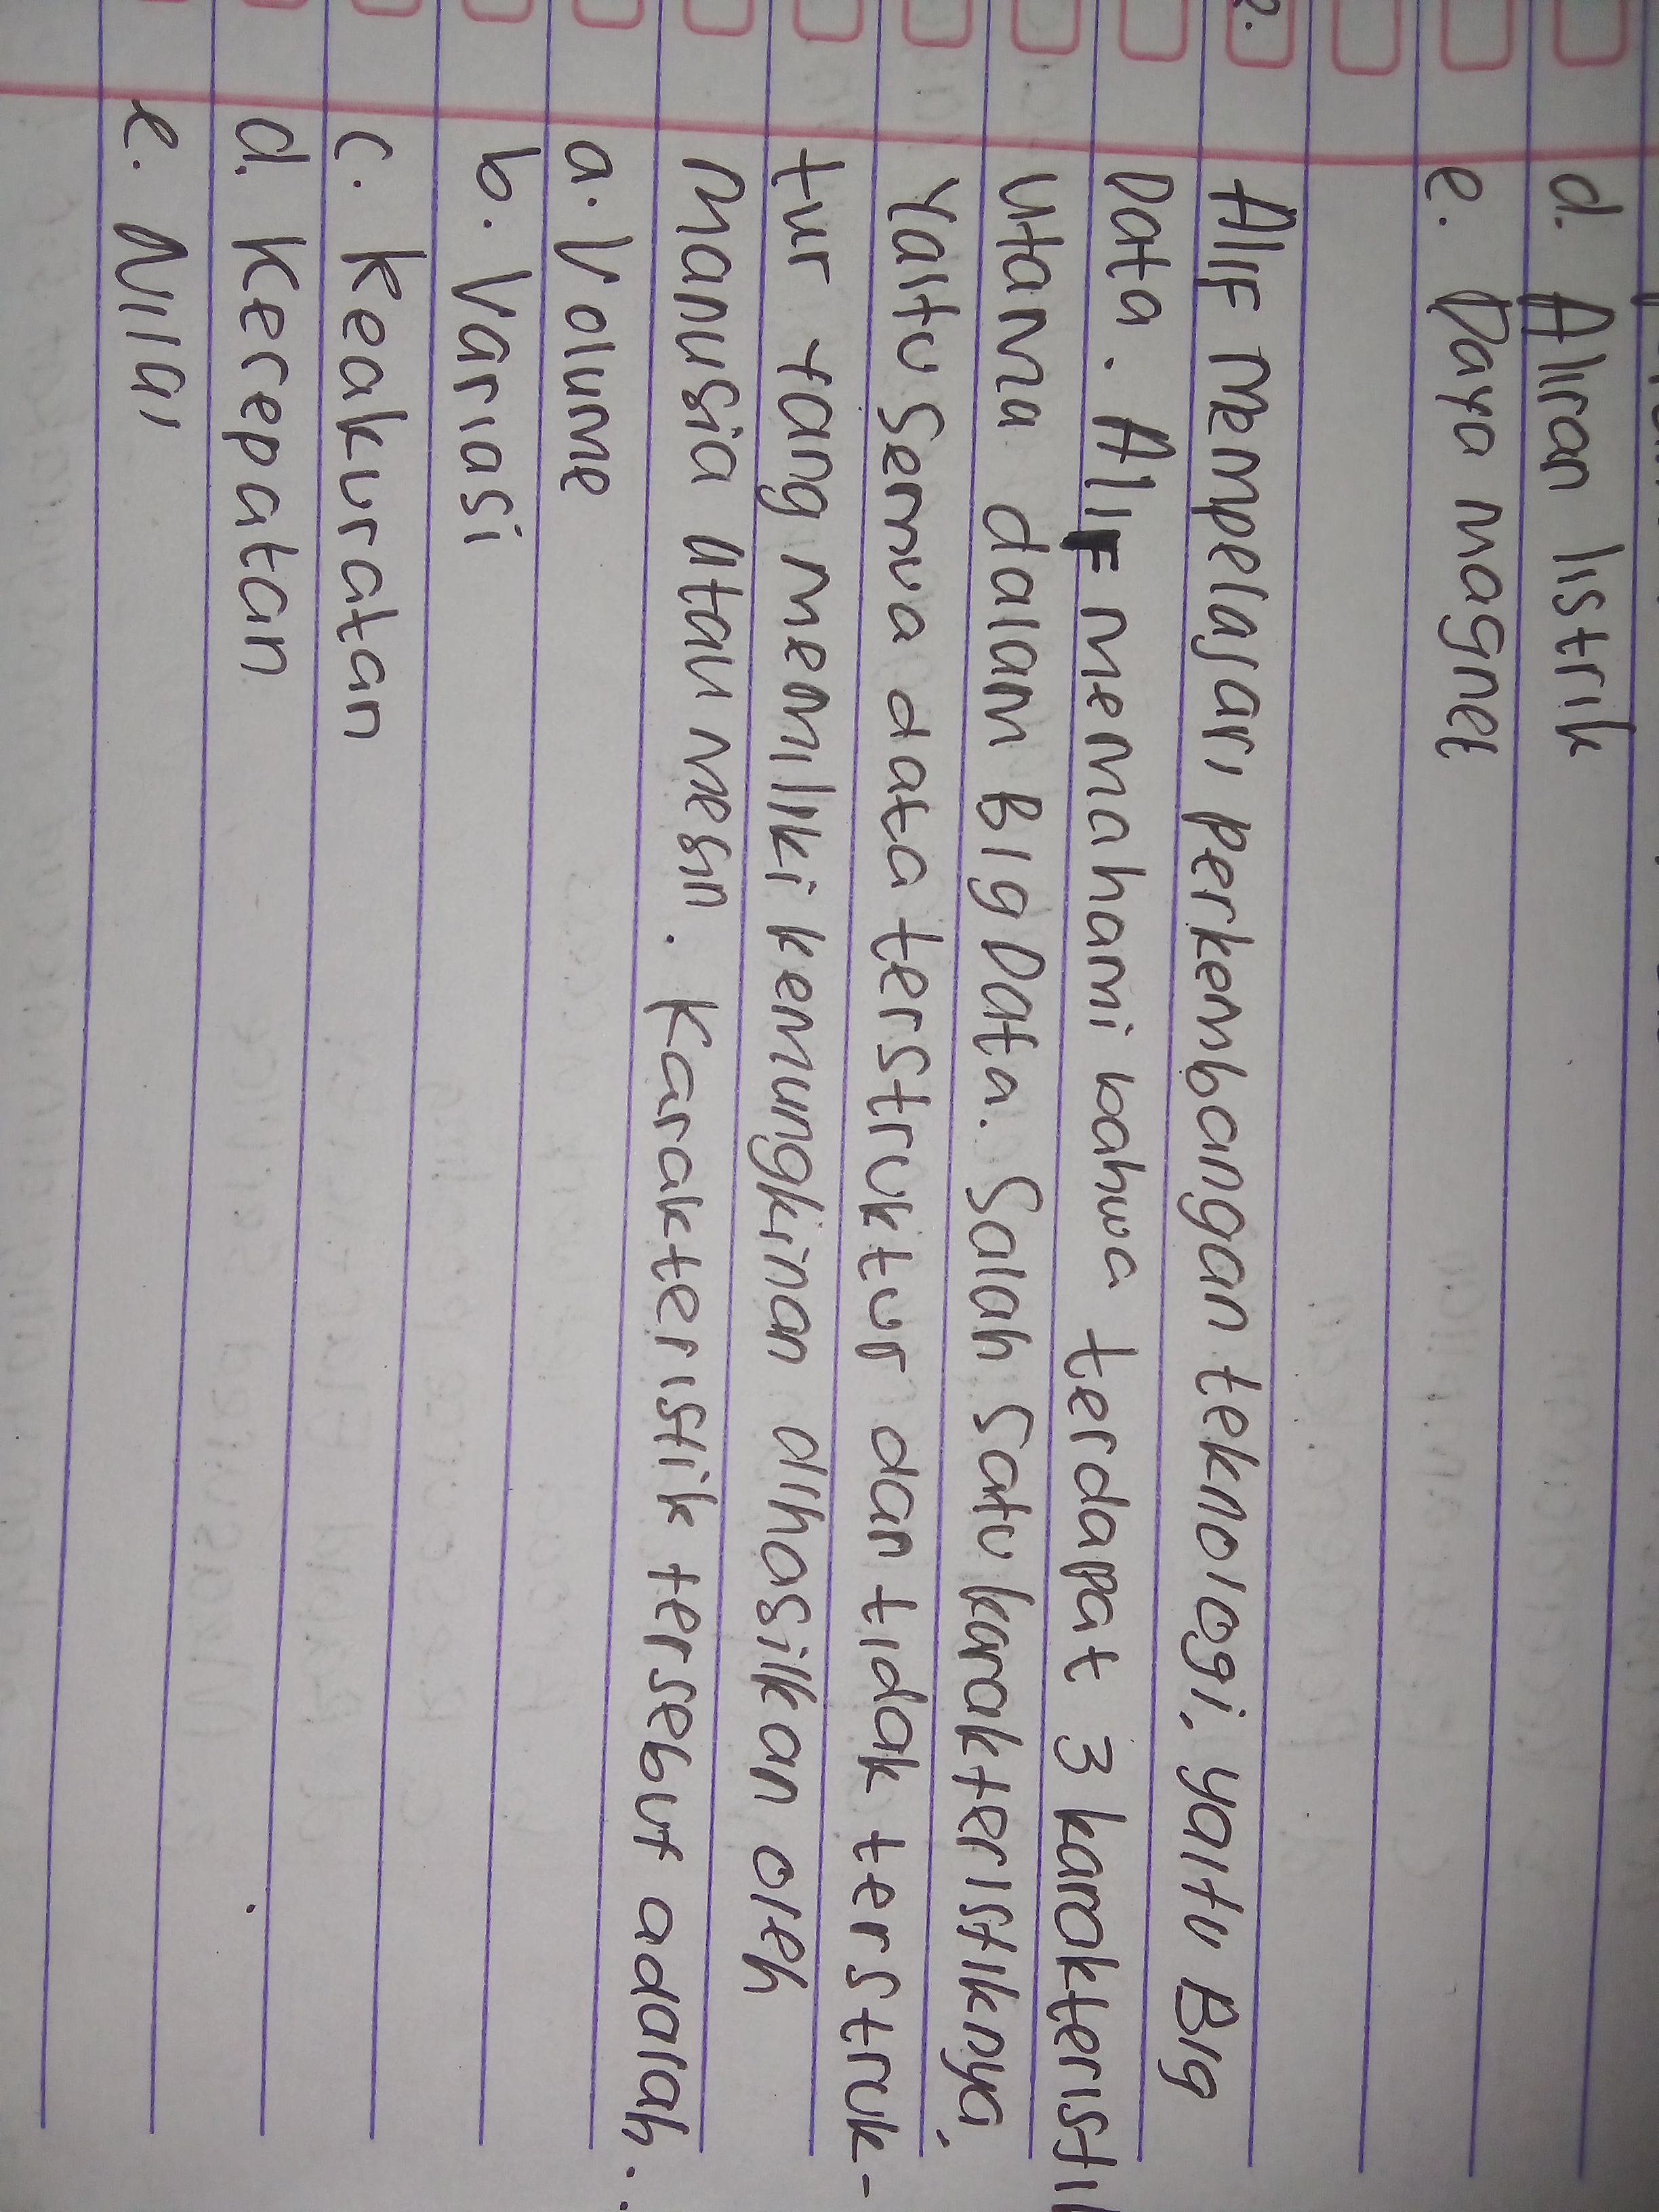 d. Aliran listrik
e. Daya magnet
2. Alif mempelajari perkembangan teknologi, yaitu Big
Data. Alif memahami bahwa terdapat 3 karakteristik
utama dalam Big Data. Salah satu karakteristiknya,
yaitu semua data terstruktur dan tidak terstruk-
tur yang memiliki kemungkinan dihasilkan oleh
manusia atau mesin. Karakteristik tersebut adalah..
a. Volume
b. Variasi
c. Keakuratan
d. Kecepatan
e. Nilai